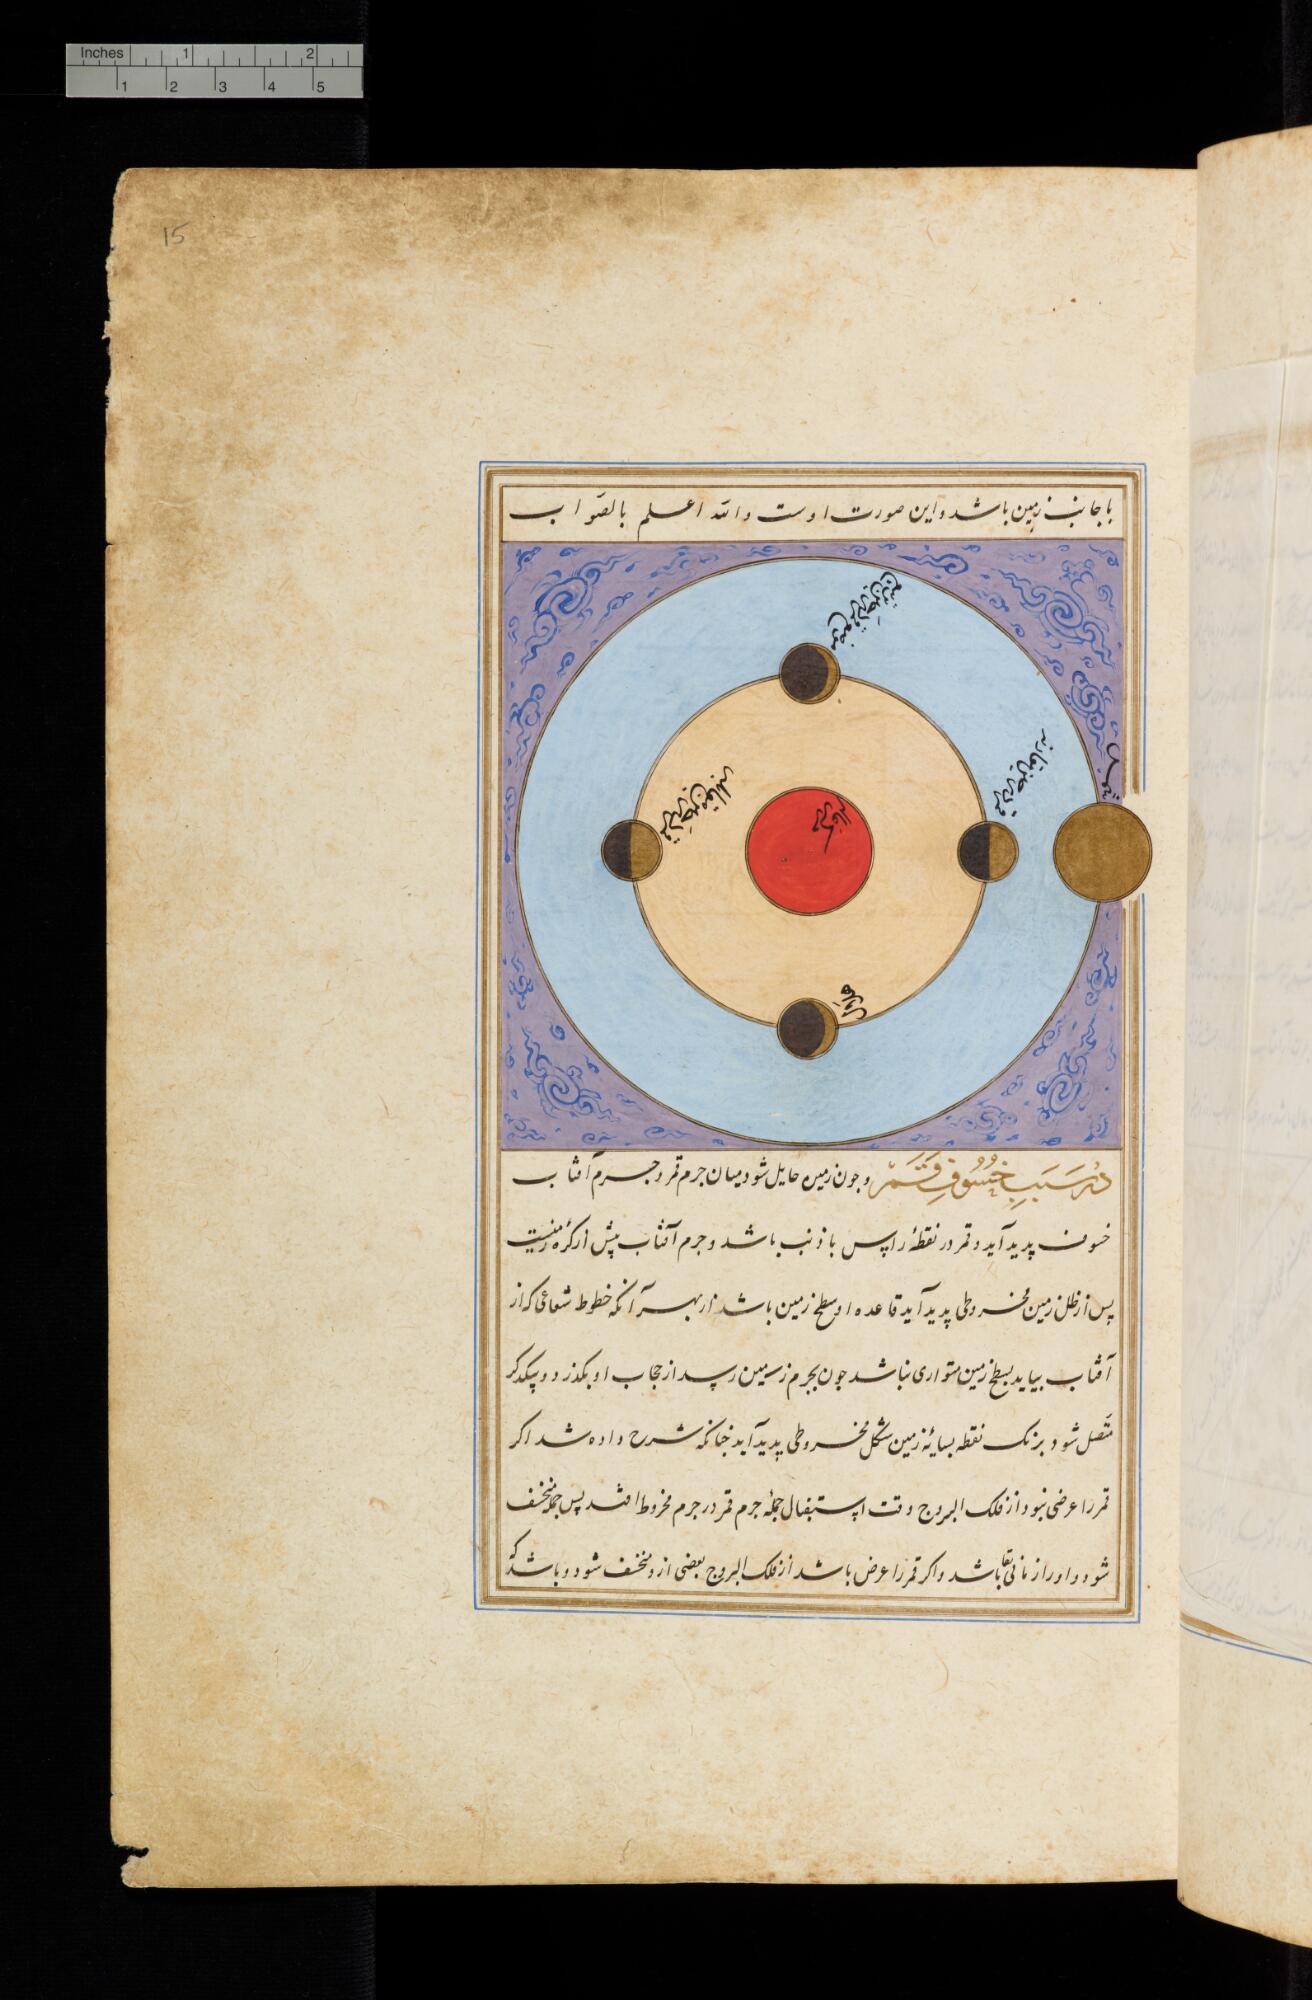 Inches 1 2
1 2 3 4 5
15
با جانب زمین باشد و این صورت اوست والله اعلم بالصّواب
شمس
مرکز عالم
هلال
در سَبَبِ خُسُوفِ قَمَر و جون زمین حایل شود میان جرم قمر و جرم آفتاب
خسوف پدید آید و قمر در نقطهٔ راس یا ذنب باشد و جرم آفتاب بیش از کرهٔ زمینست
پس از ظلّ زمین مخروطی پدید آید قاعده او سطح زمین باشد از بهر آنکه خطوط شعاعی که از
آفتاب بیاید بسطح زمین متواری نباشد جون بجرم زمین رسد از حجاب او بکذرد و بیکدکر
متّصل شود بر یک نقطه سایهٔ زمین شکل مخروطی پدید آید جنانکه شرح داده شد اکر
قمر را عرضی نبود از فلک البروج وقت استقبال جملهٔ جرم قمر در جرم مخروط افتد پس جمله منخسف
شود و او را زمانی بقا باشد و اکر قمر را عرض باشد از فلک البروج بعضی ازو منخسف شود و باشد که